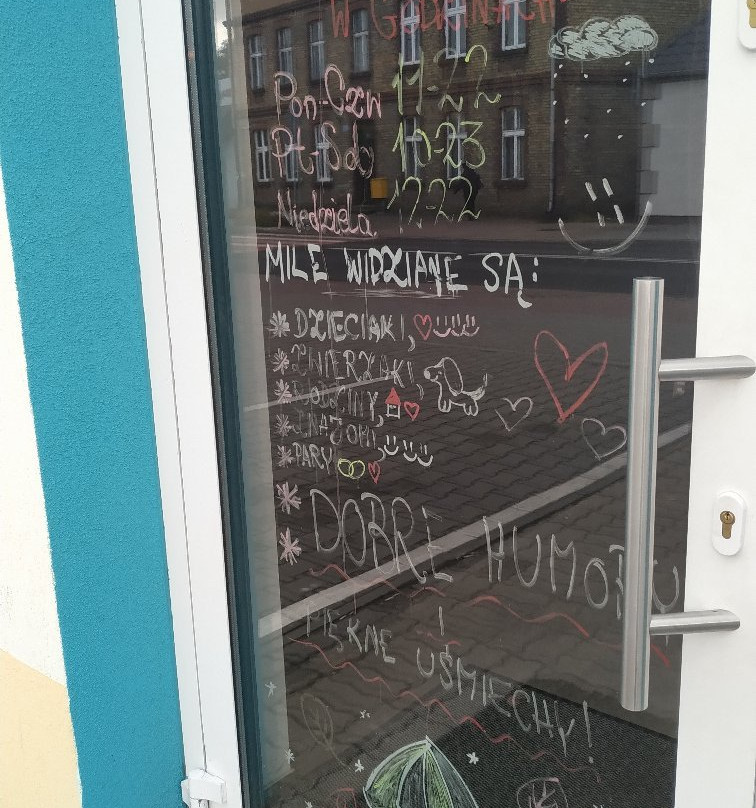 W GODZINACH
Pon-Czw 11-22
Pt-Sob 10-23
Niedziela 12-22
MILE WIDZIANE SĄ:
* DZIECIAKI,
* ZWIERZAKI,
* RODZINY,
* ZNAJOMI,
* PARY
*
* DOBRE HUMORY
I
PIĘKNE UŚMIECHY!